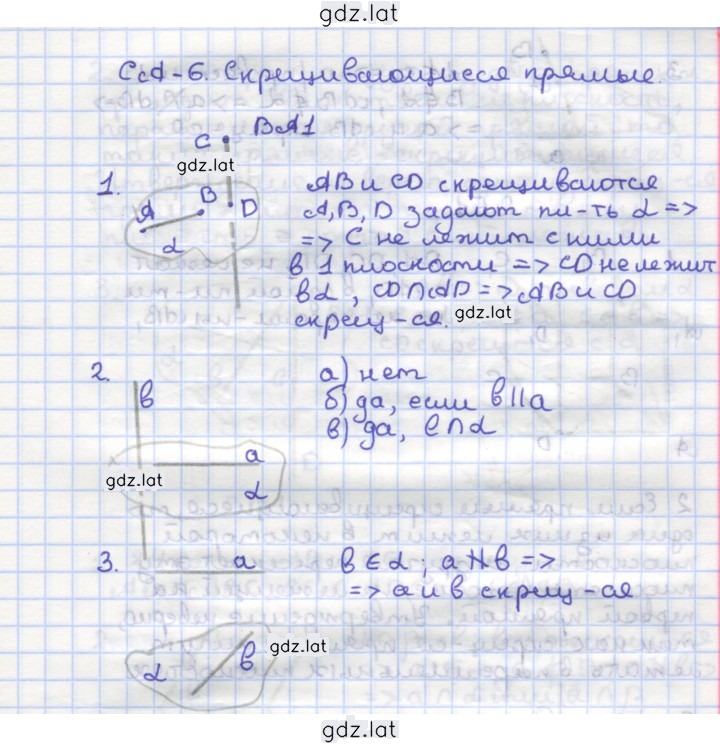 gdz.lat
СА-6. Скрещивающиеся прямые.
ВА1
C
gdz.lat
1.
A
B
D
α
AB и CD скрещиваются
A, B, D задают пл-ть α =>
=> C не лежит с ними
в 1 плоскости => CD не лежит
в α , CD∩AD => AB и CD
скрещ-ся.
gdz.lat
2.
в
a
α
gdz.lat
а) нет
б) да, если в||a
в) да, в∩α
3.
a
в ∈ α ; a ∦ в =>
=> a и в скрещ-ся
α
в
gdz.lat
gdz.lat